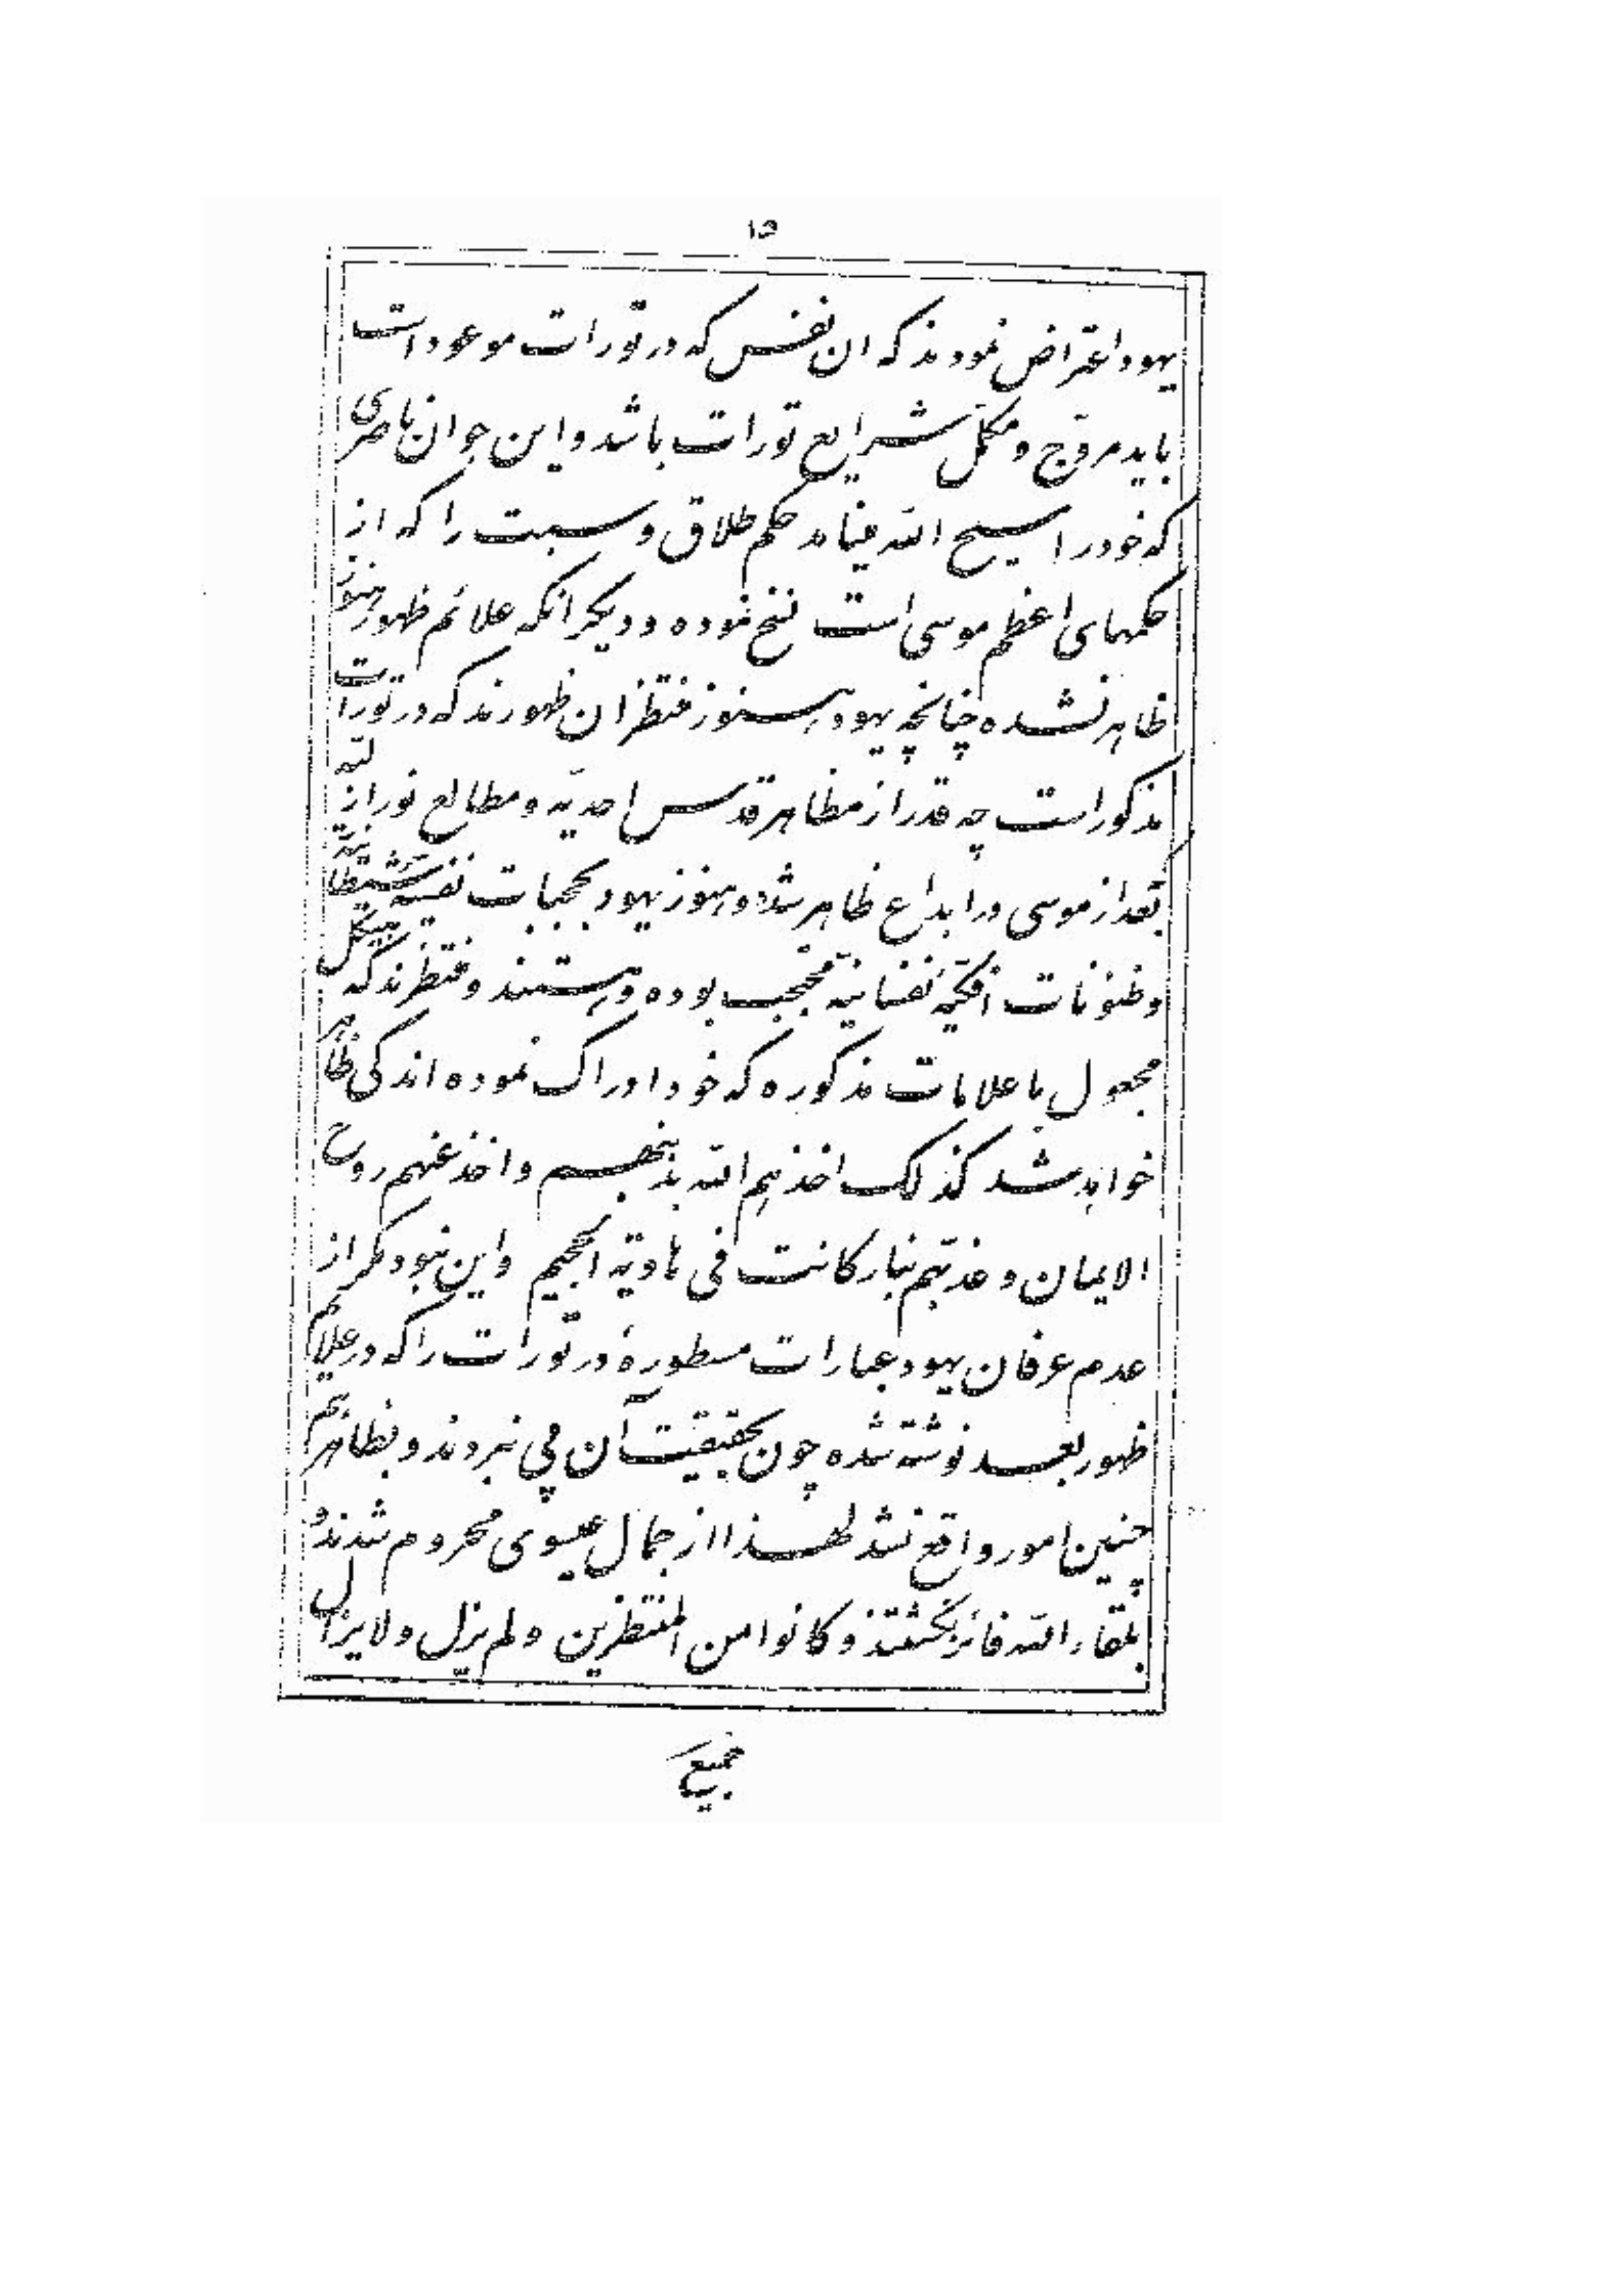 ۱۵
یهود اعتراض نمودند که ان نفس که در تورات موعود است
باید مروّج و مکمّل شرایع تورات باشد و این جوان ناصری
که خود را مسیح الله مینامد حکم طلاق و سبت را که از
حکمهای اعظم موسی است نسخ نموده و دیگر انکه علائم ظهور هنوز
ظاهر نشده چنانچه یهود هنوز منتظر ان ظهورند که در تورات
مذکور است چه قدر از مظاهر قدس احدیّه و مطالع نور ازلیّه
بعد از موسی در ابداع ظاهر شده و هنوز یهود بحجبات نفسیّه شیطانیّه
و ظنونات افکیّه نفسانیّه محتجب بوده و هستند و منتظرند که هیکل
مجعول با علامات مذکوره که خود ادراک نموده اند کی ظاهر
خواهد شد کذلک اخذهم الله بذنبهم و اخذ عنهم روح
الایمان و عذّبهم بنار کانت فی هاویة الجحیم و این نبود مگر از
عدم عرفان یهود عبارات مسطورهٔ در تورات را که در علایم
ظهور بعد نوشته شده چون بحقیقت آن پی نبردند و بظاهر هم
چنین امور واقع نشد لهذا از جمال عیسوی محروم شدند و
بلقاء الله فائز نگشتند و کانوا من المنتظرین و لم یزل و لا یزال
جمیع